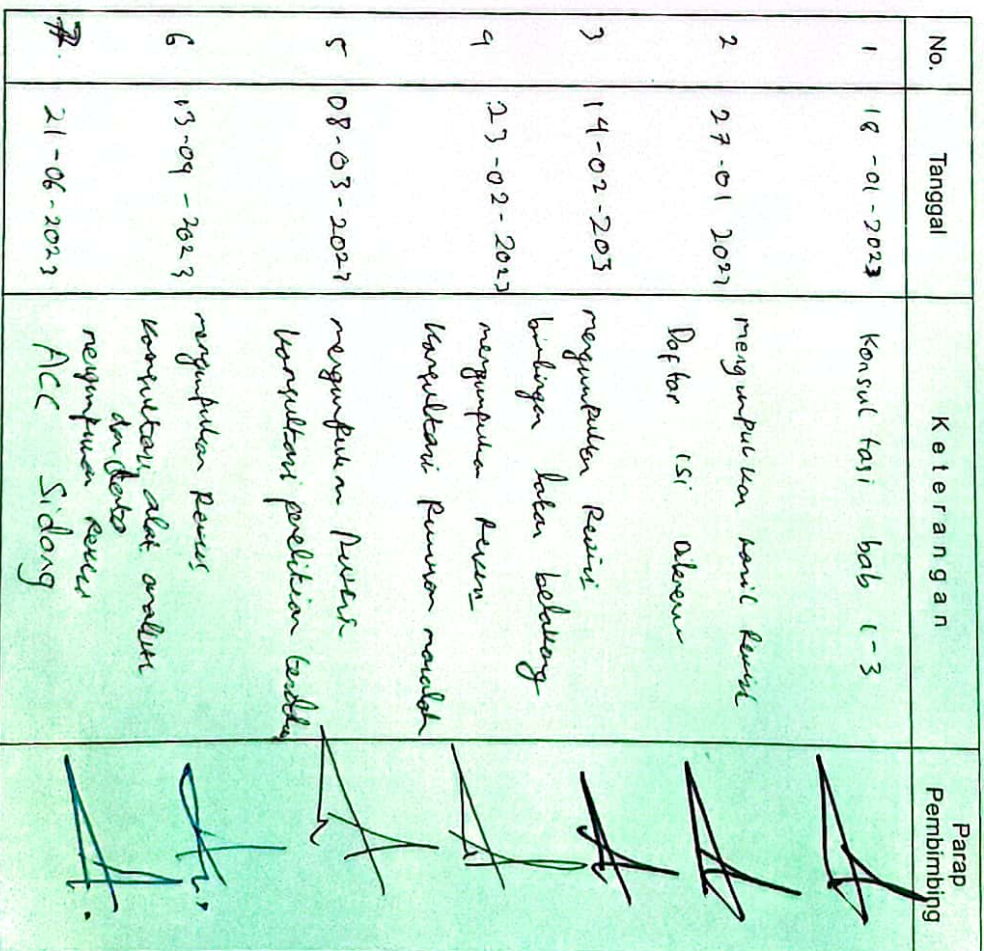 No. Tanggal Keterangan Parap Pembimbing
1 18-01-2023 Konsultasi bab 1-3
2 27-01 2023 mengumpulkan hasil Revisi
Daftar isi
3 14-02-203 mengumpulkan Revisi
bimbingan latar belakang
4 23-02-2023 mengumpulkan Revisi
Konsultasi Rumusan masalah
5 08-03-2023 mengumpulkan Revisi
konsultasi penelitian terdahulu
6 13-04-2023 mengumpulkan Revisi
Konsultasi alat analisis
dan data
7. 21-06-2023 mengumpulkan Revisi
ACC Sidang